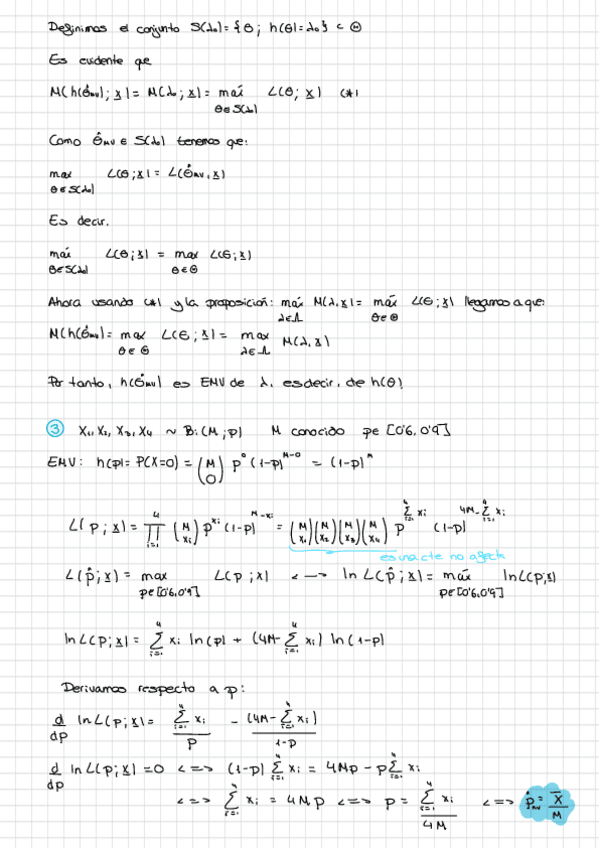 Definimos el conjunto S(λ₀) = {θ ; h(θ) = λ₀} ⊂ Θ
Es evidente que
M(h(θ̂ₘᵥ) ; x) = M(λ₀ ; x) = máx L(θ ; x) (*)
θ∈S(λ₀)
Como θ̂ₘᵥ ∈ S(λ₀) tenemos que:
max L(θ ; x) = L(θ̂ₘᵥ, x)
θ∈S(λ₀)
Es decir,
máx L(θ ; x) = max L(θ ; x)
θ∈S(λ₀) θ∈Θ
Ahora usando (*) y la proposición: máx M(λ, x) = máx L(θ ; x) llegamos a que:
λ∈Λ θ∈Θ
M(h(θ̂ₘᵥ) = max L(θ ; x) = max M(λ, x)
θ∈Θ λ∈Λ
Por tanto, h(θ̂ₘᵥ) es EMV de λ, es decir, de h(θ)
③ X₁, X₂, X₃, X₄ ~ Bi(M ; p) M conocido p∈[0'6, 0'9]
EMV: h(p) = P(X=0) = (M 0) p⁰ (1-p)^(M-0) = (1-p)^M
L(p ; x) = ∏_{i=1}^{4} (M xᵢ) p^(xᵢ) (1-p)^(M-xᵢ) = (M x₁)(M x₂)(M x₃)(M x₄) p^(∑_{i=1}^{4} xᵢ) (1-p)^(4M-∑_{i=1}^{4} xᵢ)
es una cte no afecta
L(p̂ ; x) = max L(p ; x) <—> ln L(p̂ ; x) = máx ln L(p ; x)
p∈[0'6, 0'9] p∈[0'6, 0'9]
ln L(p ; x) = ∑_{i=1}^{4} xᵢ ln(p) + (4M - ∑_{i=1}^{4} xᵢ) ln(1-p)
Derivamos respecto a p:
d/dp ln L(p ; x) = ∑_{i=1}^{4} xᵢ / p - (4M - ∑_{i=1}^{4} xᵢ) / 1-p
d/dp ln L(p ; x) = 0 <=> (1-p) ∑_{i=1}^{4} xᵢ = 4Mp - p∑_{i=1}^{4} xᵢ
<=> ∑_{i=1}^{4} xᵢ = 4Mp <=> p = ∑_{i=1}^{4} xᵢ / 4M <=> p̂ₘᵥ = X̄ / M